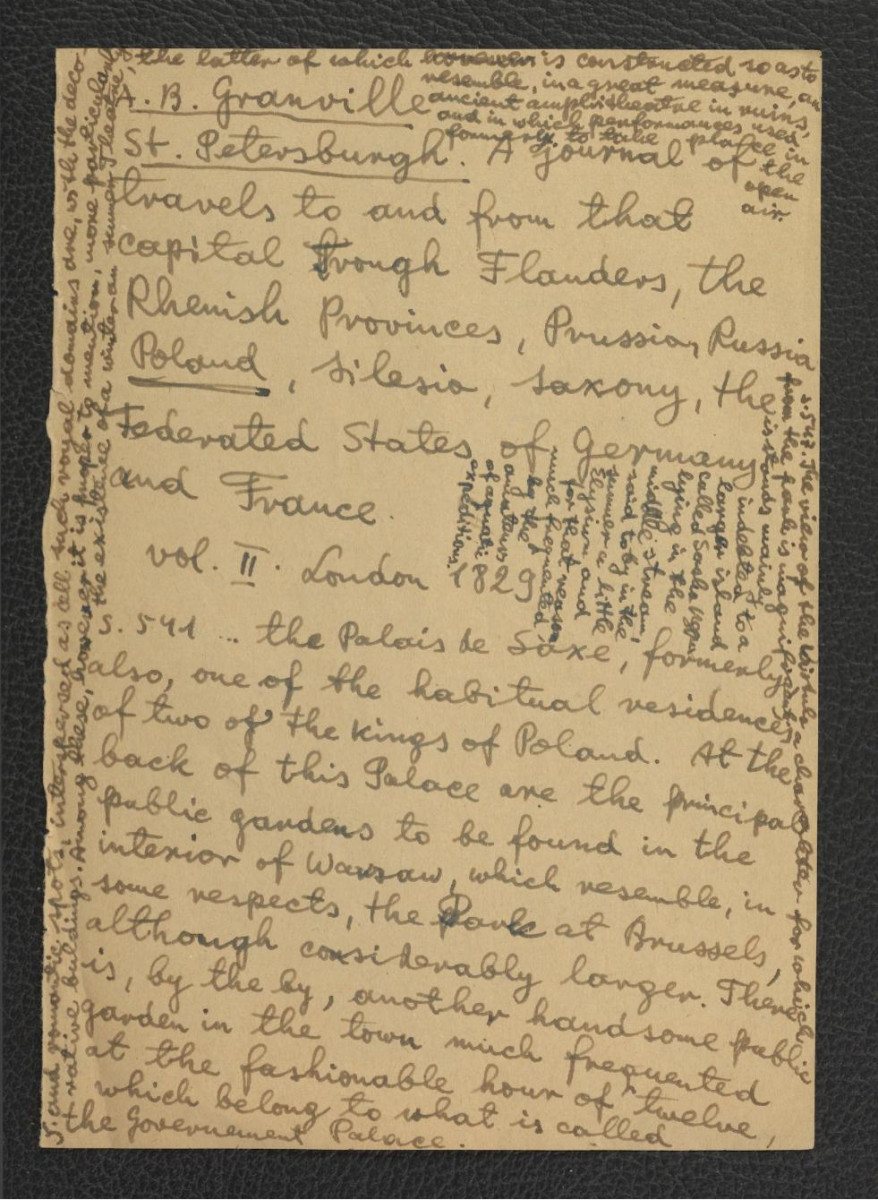 A. B. Granville
St. Petersburgh. A journal of
travels to and from that
capital trough Flanders, the
Rhenish Provinces, Prussia, Russia
Poland, Silesia, Saxony, the
Federated States of Germany
and France.
vol. II. London 1829
s. 541 .. the Palais de Saxe, formerly
also, one of the habitual residences
of two of the kings of Poland. At the
back of this Palace are the principal
public gardens to be found in the
interior of Warsaw, which resemble, in
some respects, the Park at Brussels,
although considerably larger. There
is, by the by, another handsome public
garden in the town much frequented
at the fashionable hour of twelve,
which belong to what is called
the Governement Palace.
s. 542. The view of the Vistula a character for which
from the park is magnificent;
it stands mainly
indebted to a
larger island
called Saska Kępa
lying in the
middle stream,
said to by in the
summer a little
Elysium and
for that reason
much frequented
by the
amateurs
of aquatic
expeditions.
s. and romantic spots, interspersed as all such royal domains are, with the deco-
rative buildings. Among these, however it is proper to mention, more particularly
the existence of a winter an summer Theatre,
the latter of which however is constructed so as to
resemble, in a great measure, an
ancient amphitheatre in ruins,
and in which performances used
formerly to take place in
the
open
air.